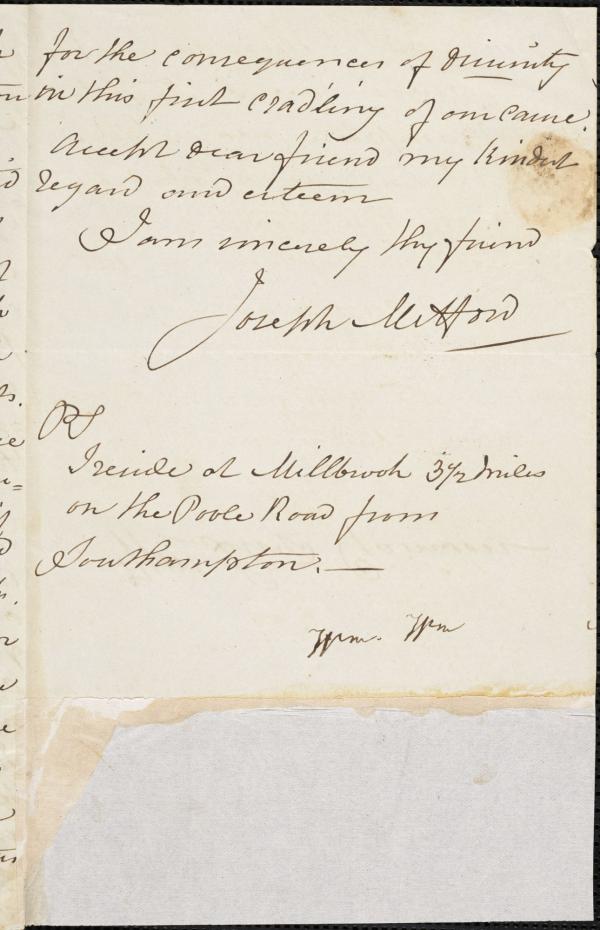 for the consequences of disunity
in this first cradling of our cause.
Accept dear friend my kindest
regard and esteem
I am sincerely thy friend
Joseph Metford
PS
I reside at Millbrook 3 1/2 miles
on the Poole Road from
Southampton. —
Wm. Wm